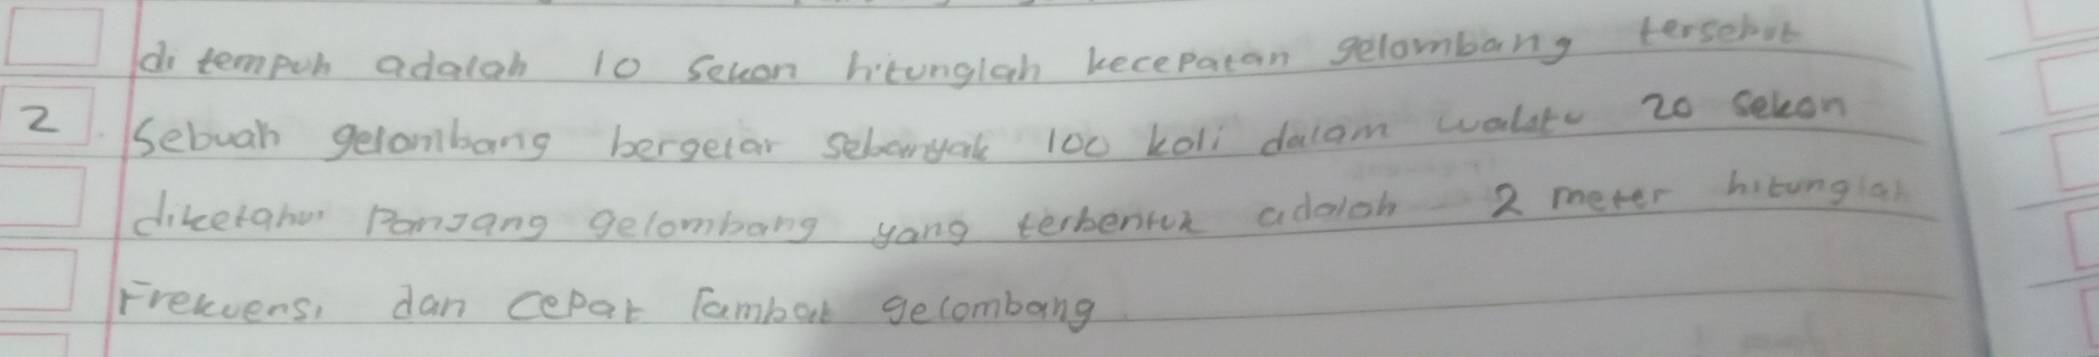 di tempuh adalah 10 sekon hitunglah kecepatan gelombang tersebut
2. Sebuah gelombang bergetar sebanyak 100 kali dalam waktu 20 sekon
diketahui Panjang gelombang yang terbentuk adalah 2 meter hitunglah
Frekuensi dan cepat rambat gelombang